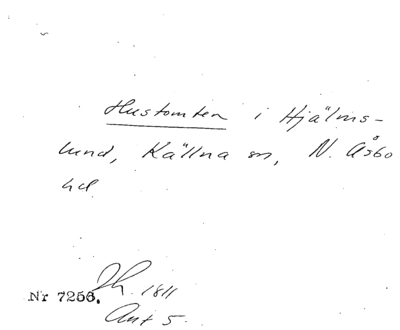 Hustomten i Hjälms-
lund, Källna sn, N. Åsbo
hd
Nr 7256. 1811
Ant 5.